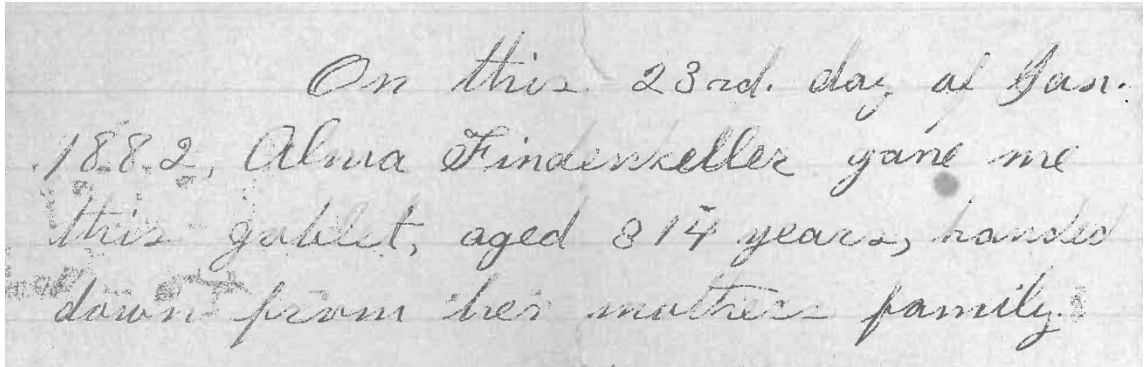 On this 23rd. day of Jan.
1882, Alma Findenkeller gave me
this goblet, aged 314 years, handed
down from her mothers family.